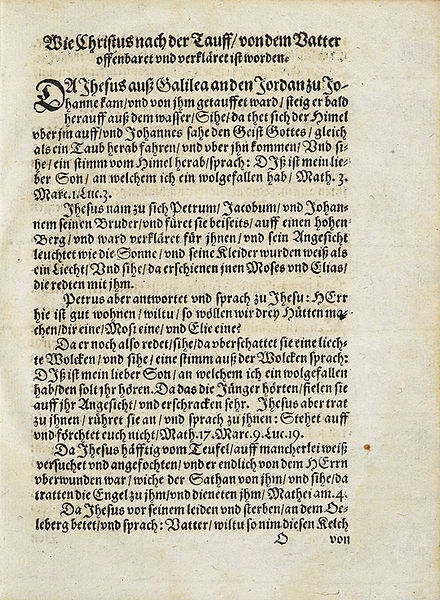 Wie Christus nach der Tauff/ von dem Vatter
offenbaret und verkläret ist worden.
DA Jhesus auß Galilea an den Jordan zu Jo-
hanne kam/ vnd von jhm getauffet ward/ steig er bald
herauff auß dem wasser/ Sihe/ da thet sich der Himel
vber jm auff/ vnd Johannes sahe den Geist Gottes/ gleich
als ein Taub herab fahren/ vnd vber jhn kommen/ Vnd si-
he/ ein stimm vom Himel herab/ sprach: DIß ist mein lie-
ber Son/ an welchem ich ein wolgefallen hab/ Math. 3.
Marc. 1. Luc. 3.
Jhesus nam zu sich Petrum/ Jacobum/ vnd Johan-
nem seinen Bruder/ vnd füret sie beiseits/ auff einen hohen
Berg/ vnd ward verkläret für jhnen/ vnd sein Angesicht
leuchtet wie die Sonne/ vnd seine Kleider wurden weiß als
ein Liecht/ Vnd sihe/ da erschienen jnen Moses vnd Elias/
die redten mit jhm.
Petrus aber antwortet vnd sprach zu Jhesu: HErr
hie ist gut wohnen/ wiltu/ so wöllen wir drey Hütten ma-
chen/ dir eine/ Mosi eine/ vnd Elie eine?
Da er noch also redet/ sihe/ da vberschattet sie eine liech-
te Wolcken/ vnd sihe/ eine stimm auß der Wolcken sprach:
DIß ist mein lieber Son/ an welchem ich ein wolgefallen
hab/ den solt jhr hören. Da das die Jünger hörten/ fielen sie
auff jhr Angesicht/ vnd erschracken sehr. Jhesus aber trat
zu jhnen/ rühret sie an/ vnd sprach zu jhnen: Stehet auff
vnd förchtet euch nicht/ Math. 17. Marc. 9. Luc. 19.
Da Jhesus häfftig vom Teufel/ auff mancherlei weiß
versuchet vnd angefochten/ vnd er endlich von dem HErrn
vberwunden war/ wiche der Sathan von jhm/ vnd sihe/ da
tratten die Engel zu jhm/ vnd dieneten jhm/ Mathei am. 4.
Da Jhesus vor seinem leiden vnd sterben/ an dem Oe-
leberg betet/ vnd sprach: Vatter/ wiltu so nim diesen Kelch
O von